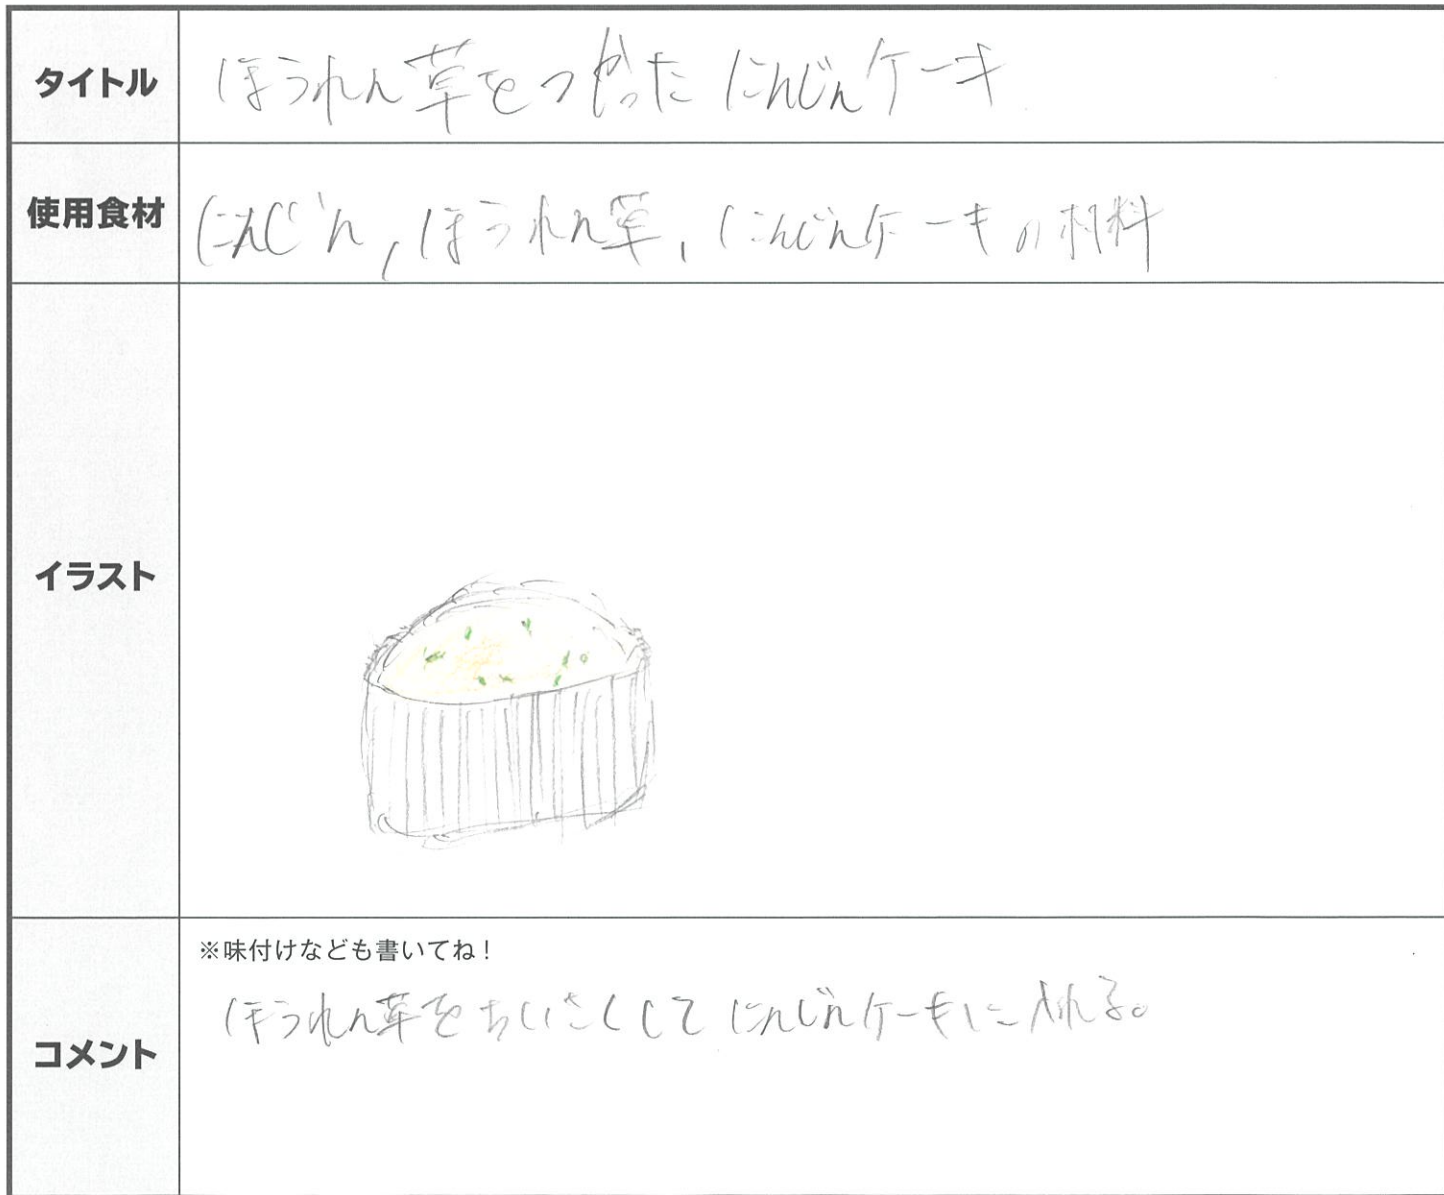 タイトル
ほうれん草をつかった にんじんケーキ
使用食材
にんじん,ほうれん草,にんじんケーキの材料
イラスト
コメント
※味付けなども書いてね!
ほうれん草をちいさくして にんじんケーキに入れる。